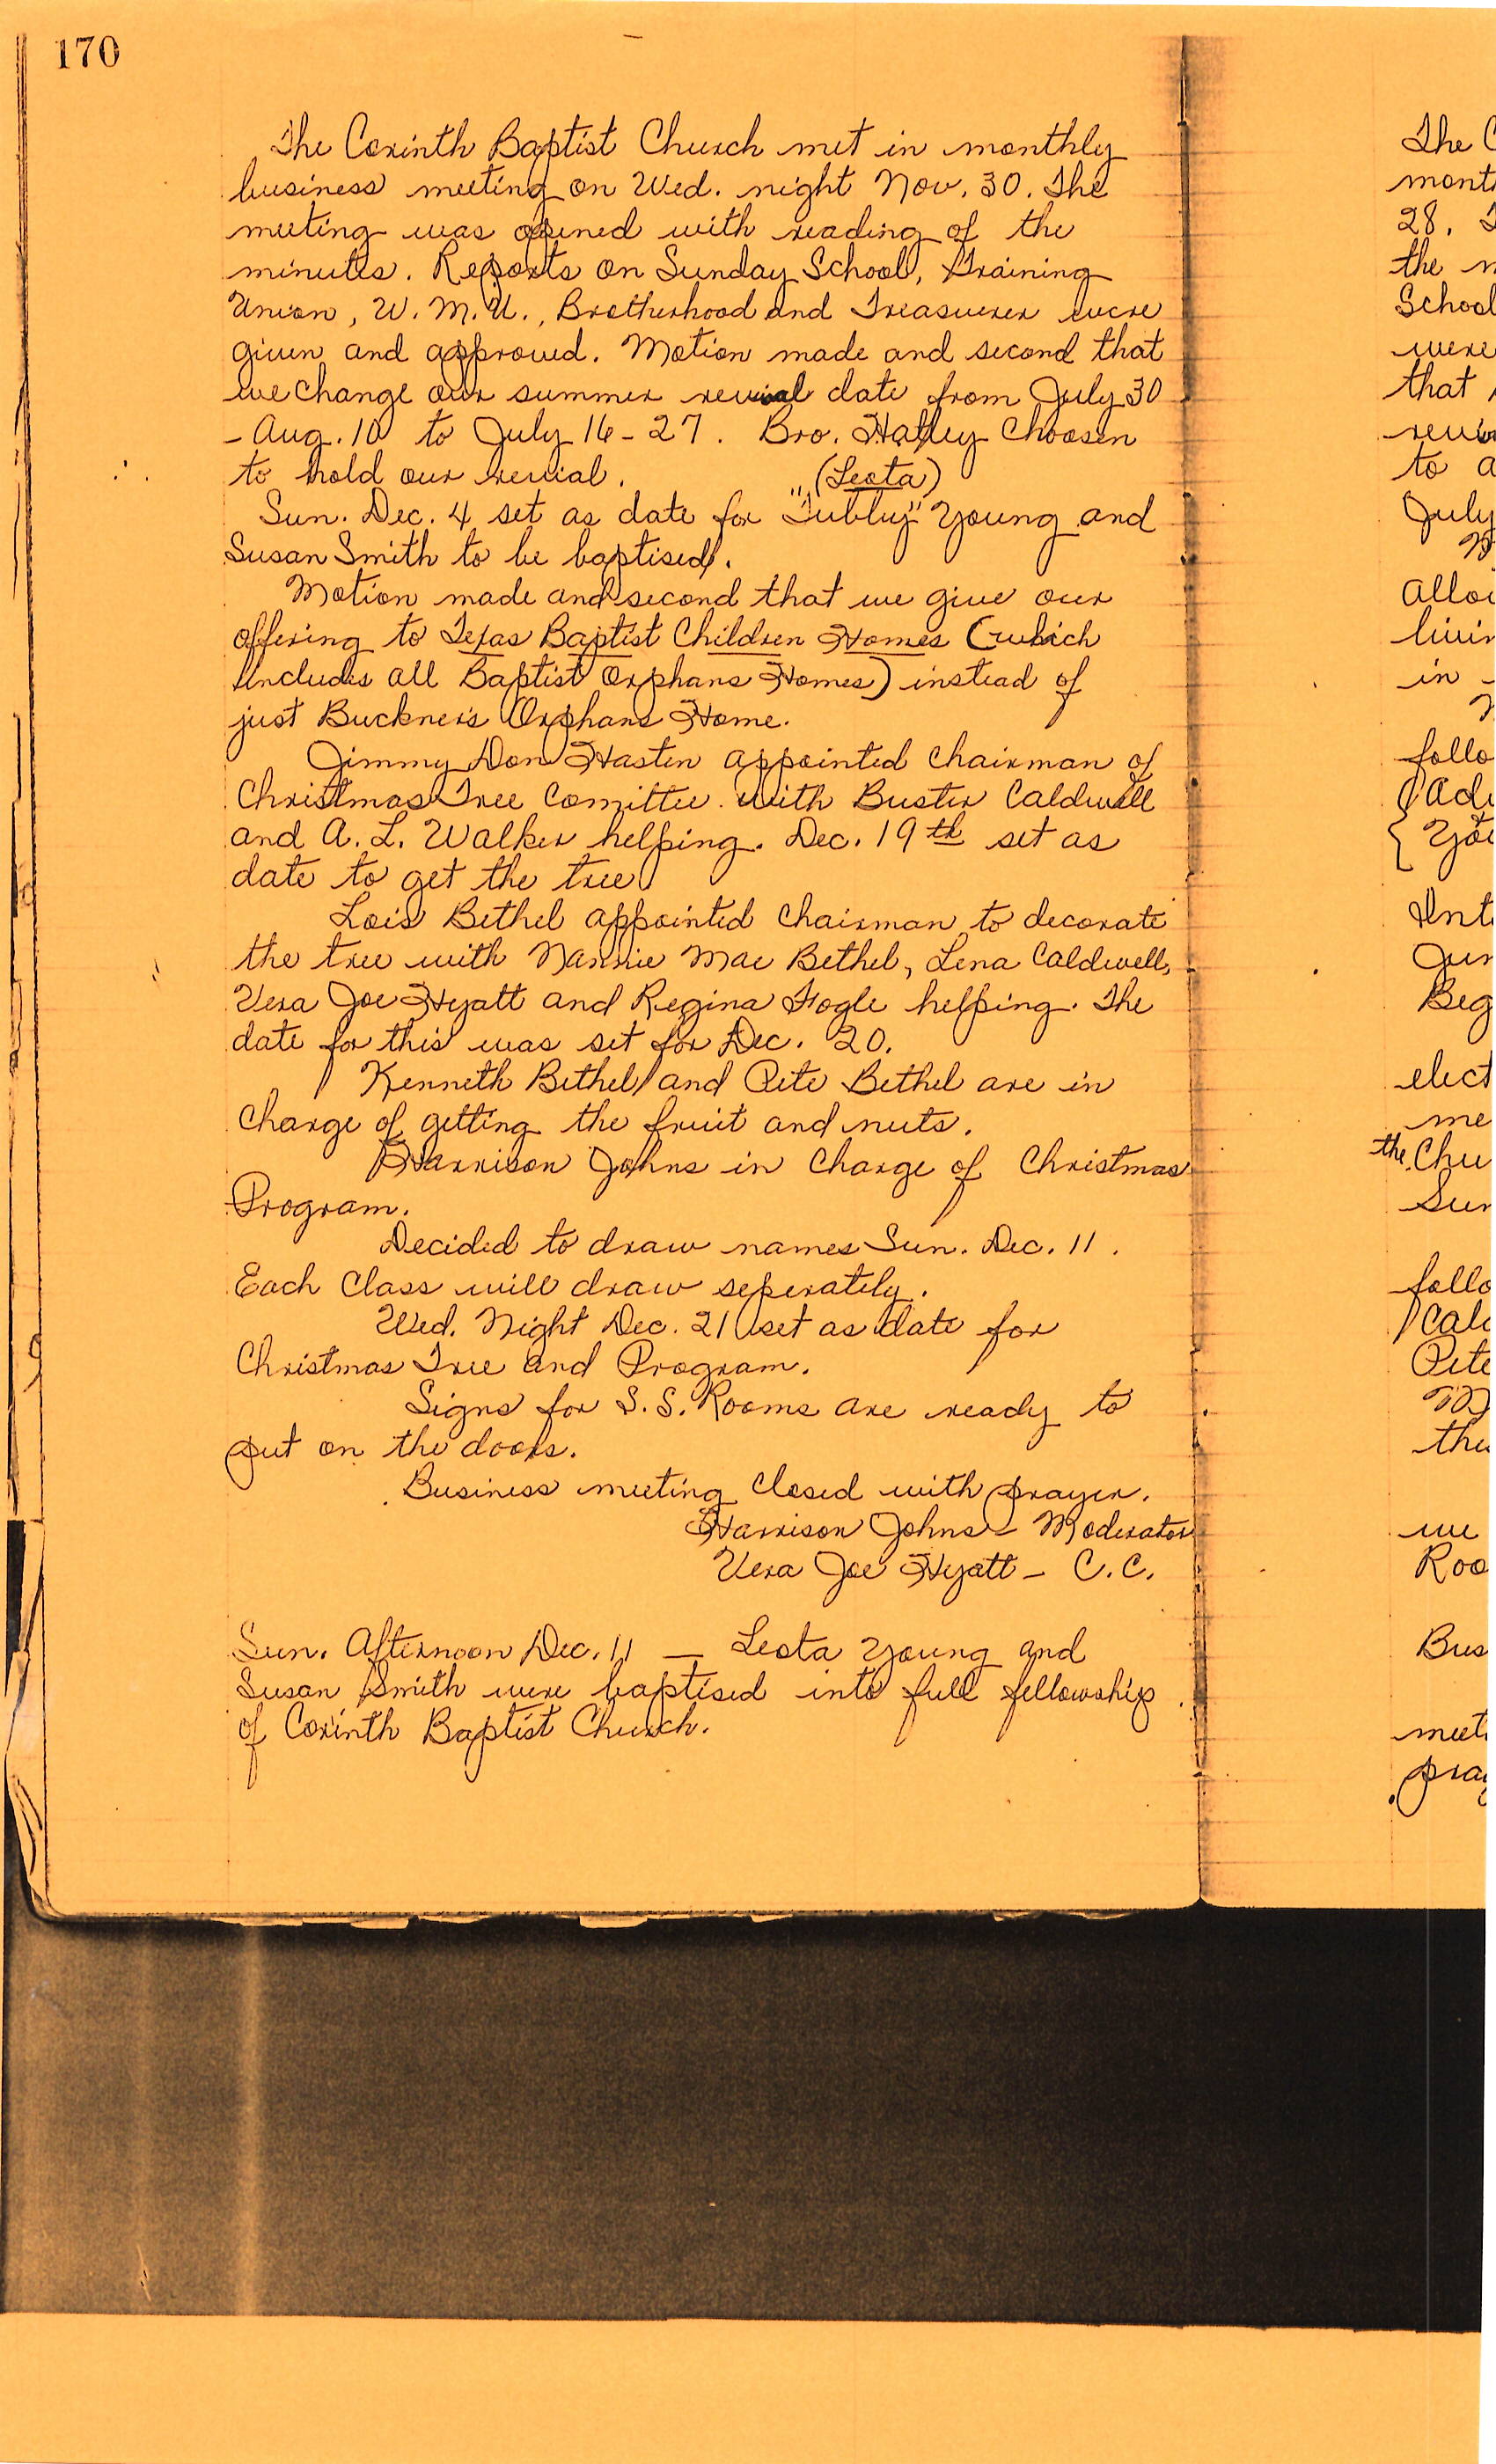 170
The Corinth Baptist Church met in monthly
business meeting on Wed. night Nov. 30. The
meeting was opened with reading of the
minutes. Reports on Sunday School, Training
Union, W. M. U., Brotherhood and Treasurer were
given and approved. Motion made and second that
we change our summer revival date from July 30
- Aug. 10 to July 16 - 27. Bro. Hatley Choosen
to hold our revial.
(Leota)
Sun. Dec. 4 set as date for "Tubby" Young and
Susan Smith to be baptised.
Motion made and second that we give our
offering to Texas Baptist Children Homes (which
includes all Baptist Orphans Homes) instead of
just Buckners Orphans Home.
Jimmy Don Hasten appointed Chairman of
Christmas Tree Comittee with Buster Caldwell
and A. L. Walker helping. Dec. 19th set as
date to get the tree
Lois Bethel appointed Chairman to decorate
the tree with Nannie Mae Bethel, Lena Caldwell,
Vera Joe Hyatt and Regina Fogle helping. The
date for this was set for Dec. 20.
Kenneth Bethel and Pete Bethel are in
Charge of getting the fruit and nuts.
Harrison Johns in Charge of Christmas
Program.
Decided to draw names Sun. Dec. 11.
Each Class will draw seperately.
Wed. Night Dec. 21 set as date for
Christmas Tree and Program.
Signs for S. S. Rooms are ready to
put on the doors.
Business meeting Closed with prayer.
Harrison Johns - Moderator
Vera Joe Hyatt - C. C.
Sun. Afternoon Dec. 11 — Leota Young and
Susan Smith were baptised into full fellowship
of Corinth Baptist Church.
The C
mont
28.
the m
School
were
that
to a
July
allo
livin
in
follo
Int
Jun
Beg
elect
me
the Chu
Sun
follo
Cal
Pete
the
we
Roo
Bus
meet
pray